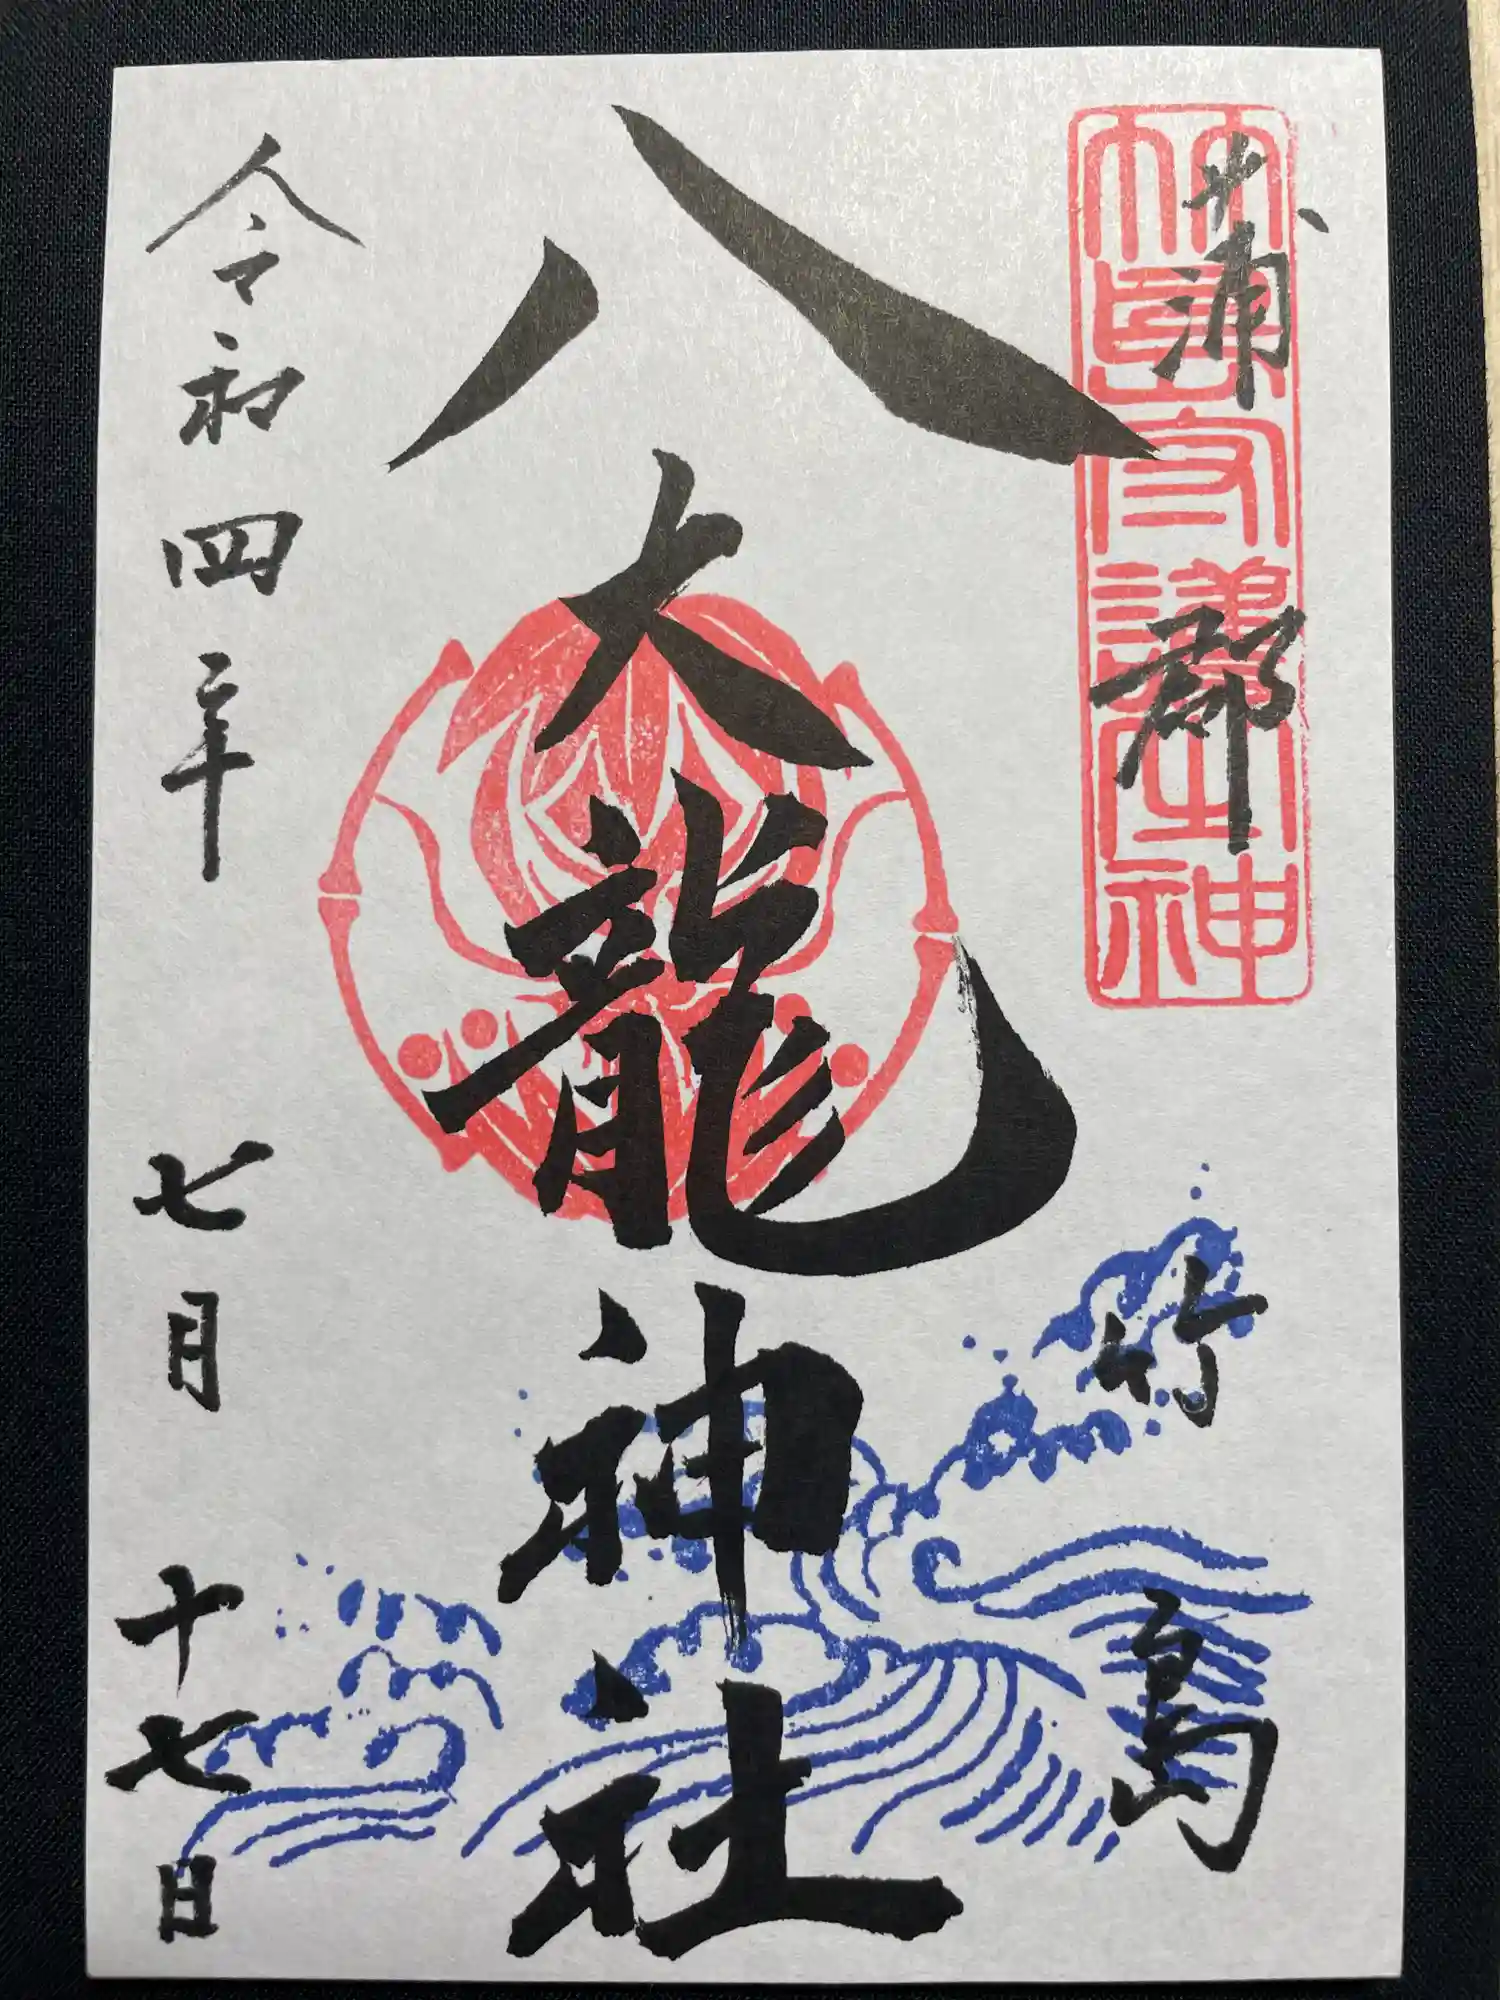 蒲郡 竹島
八大龍神社
令和四年 七月 十七日
竹島守護之神